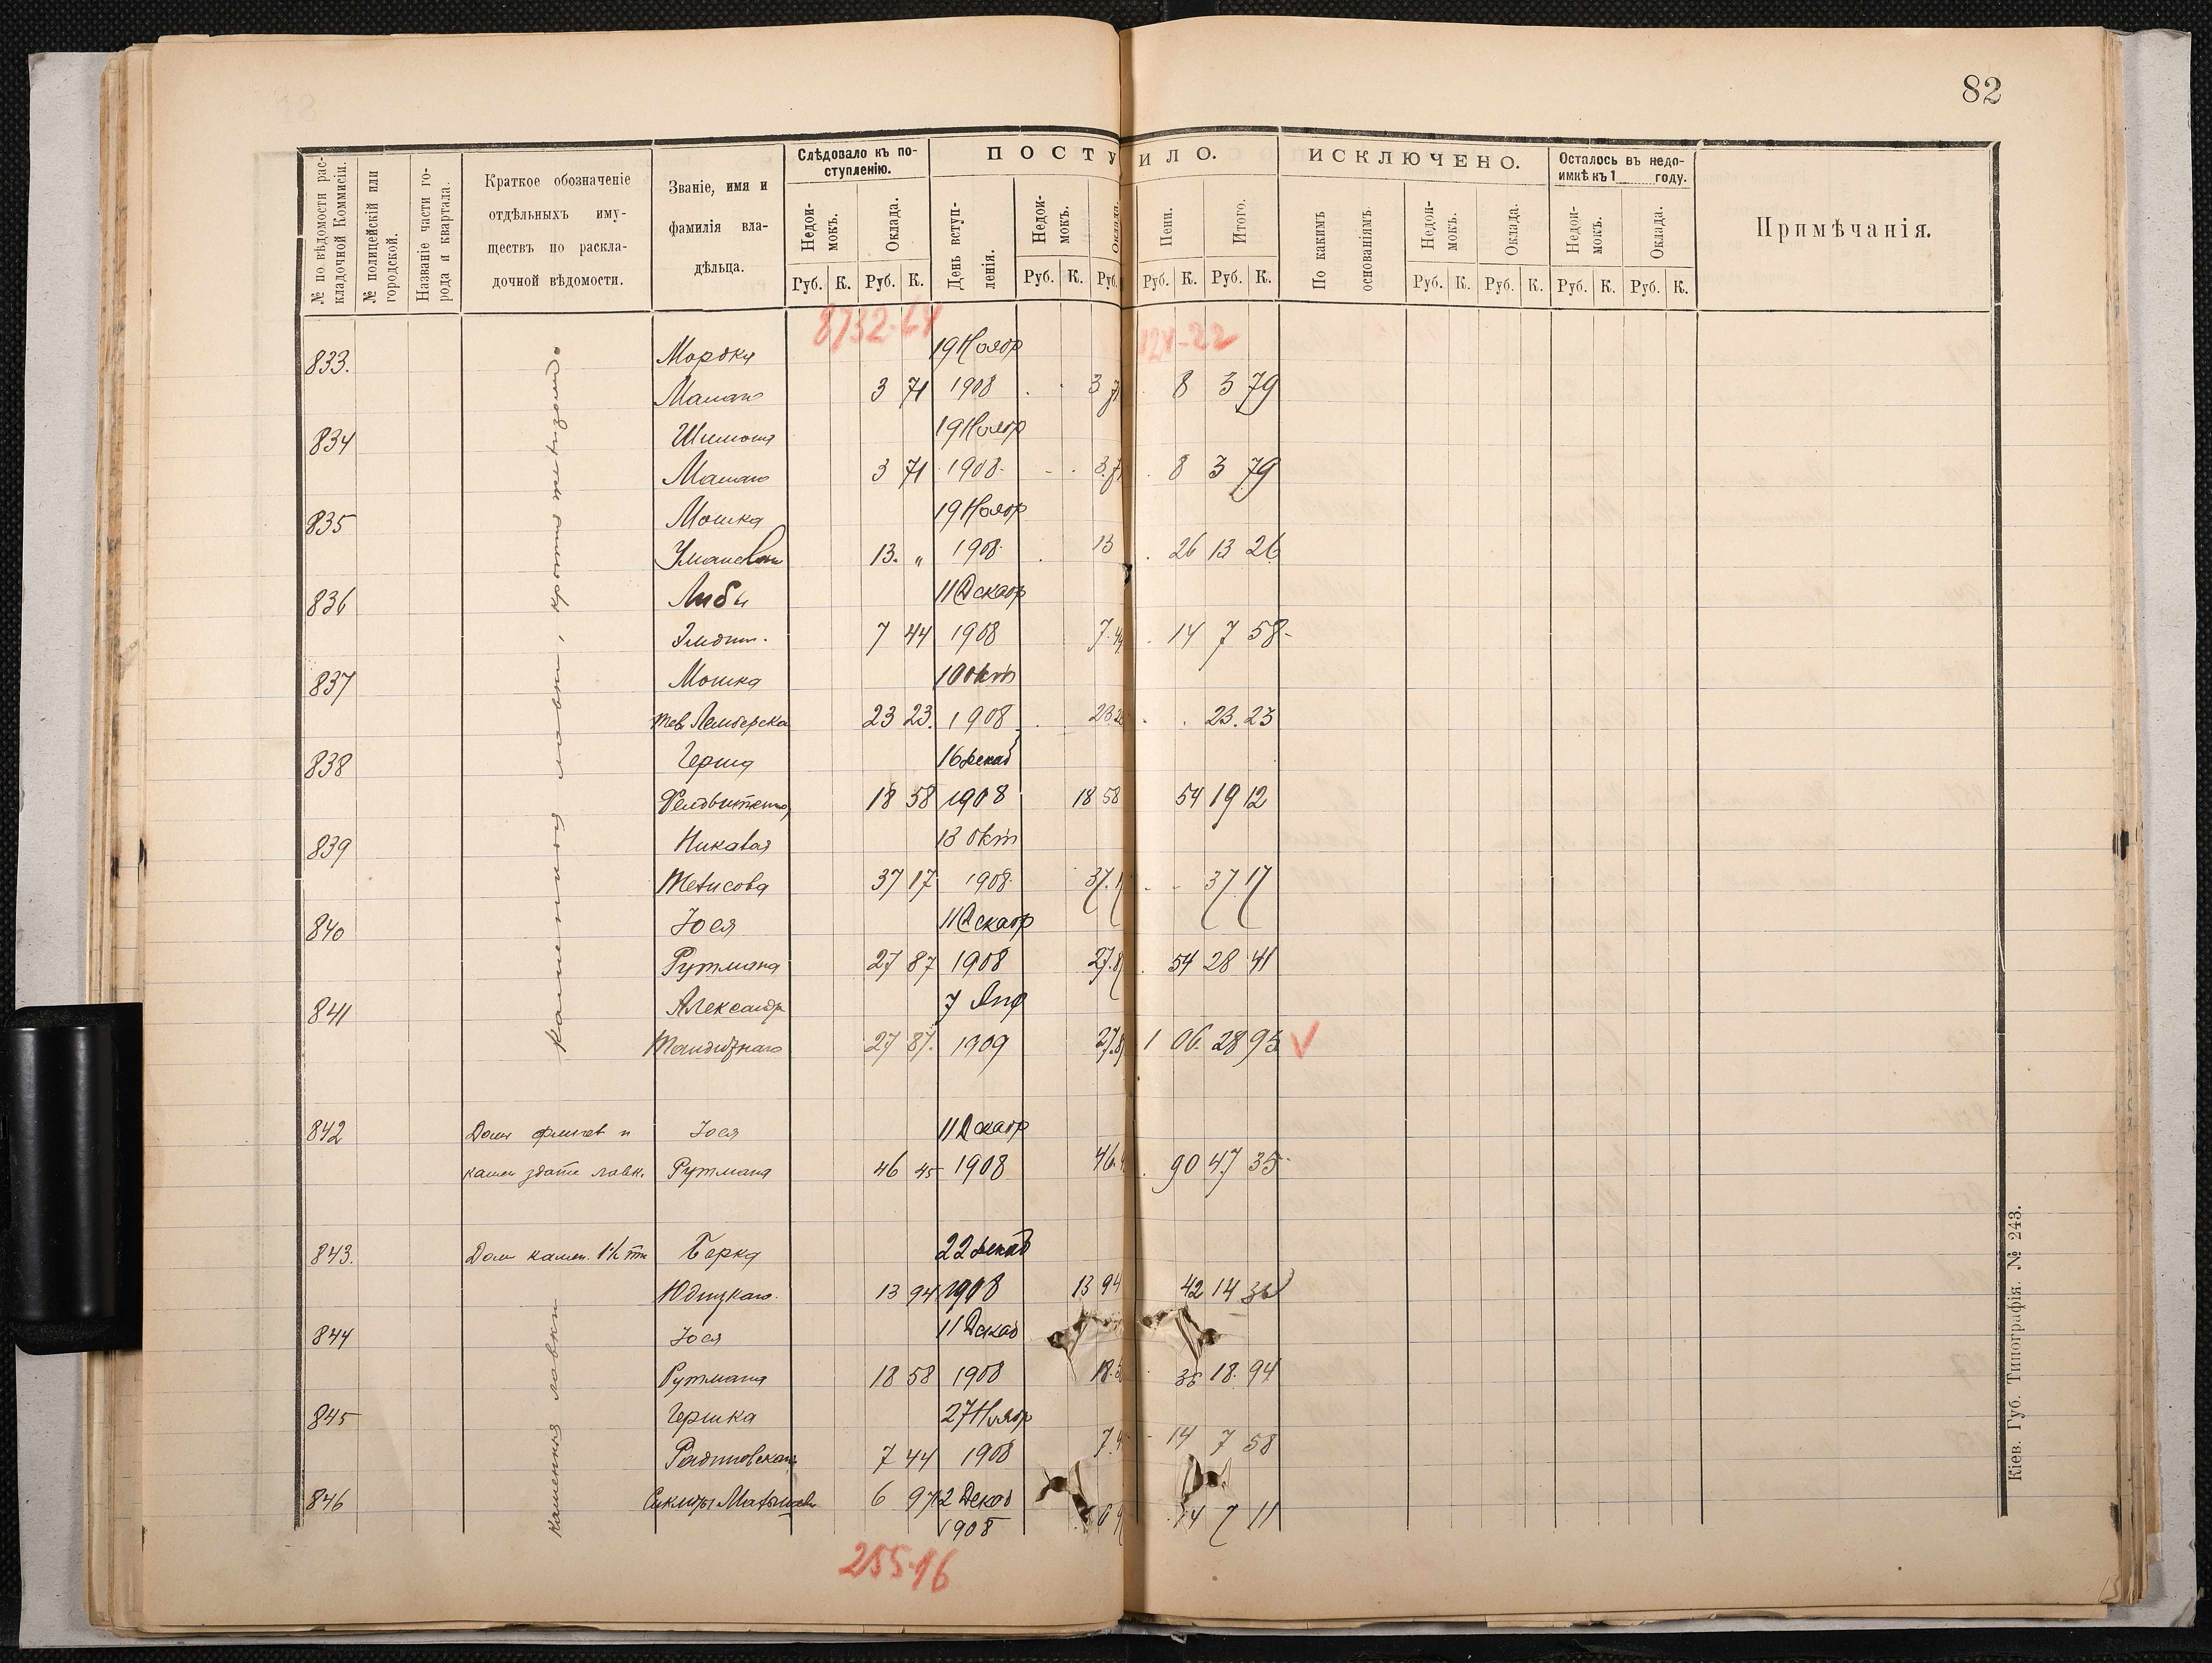 82
№ по вѣдомости рас-
кладочной Коммисіи.
№ полицейскій или
городской.
Названіе части го-
рода и квартала.
Краткое обозначеніе
отдѣльныхъ иму-
ществъ по раскла-
дочной вѣдомости.
Званіе, имя и
фамилія вла-
дѣльца.
Слѣдовало къ по-
ступленію.
Недои-
мокъ.
Оклада.
ПОСТУ ИЛО.
День вступ-
ленія.
Недои-
мокъ.
Оклада.
Пени.
Итого.
ИСКЛЮЧЕНО.
По какимъ
основаніямъ.
Недои-
мокъ.
Оклада.
Осталось въ недо-
имкѣ къ 1 году.
Недои-
мокъ.
Оклада.
Примѣчанія.
Руб. К. Руб. К. Руб. К. Руб. Руб. К. Руб. К. Руб. К. Руб. К. Руб. К. Руб. К.
8732-64 124-22
833. Мордки 19 Ноябр
3 71 1908 3 71 8 3 79
834 Шимона 19 Ноябр
3 71 1908 3.71 8 3 79
835 Мошка 19 Ноябр
13. „ 1908 13 26 13 26
836 Либы 11 Декабр
7 44 1908 7.44 14 7 58
837 Мошка 10 окт
23 23. 1908 23.23 23.23
838 Герша 16 декаб
18 58 1908 18 58 54 19 12
839 13 окт
37 17 1908 37.17 37 17
840 Іося 11 Декабр
Рутмана 27 87 1908 27.87 54 28 41
841 Александр 7 Апр
27 87. 1909 27.87 1 06. 28 93
каменныя лавки, кромѣ
842 Домъ флигел и Іося 11 Декабр
камен здание лавк. Рутмана 46 45 1908 46.4 90 47 35
843. Дом камен. 1½ эт Берка 22 декаб
Юдицкаго 13 94 1908 13 94 42 14 36
844 Іося 11 Декаб
Рутмана 18 58 1908 18.58 36 18.94
845 Гершка 27 Ноябр
7 44 1908 7.4 14 7 58
846 6 97 2 Декаб 6 9 14 7 11
1908
каменныя лавки
255-16
Кіев. Губ. Типографія. № 243.